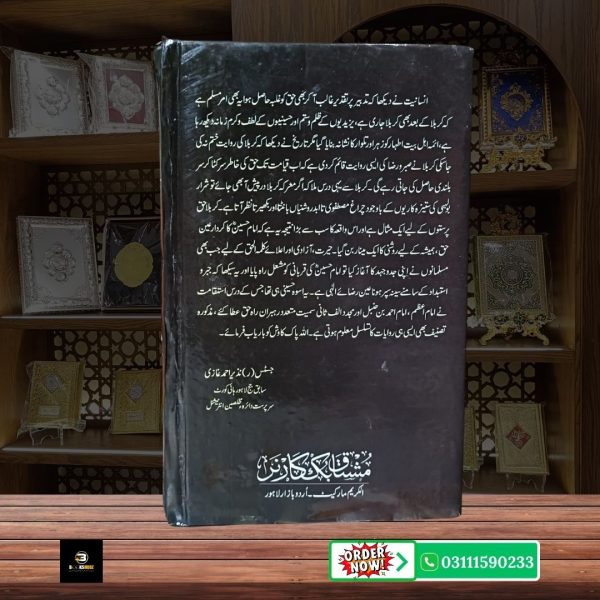 انسانیت نے دیکھا کہ تدبیر پر تقدیر غالب آ کر بھی حق کو غلبہ حاصل ہوا یہ بھی امر مسلم ہے
کہ کربلا کے بعد بھی کربلا جاری ہے، یزیدیوں کے ظلم و ستم اور حسینیوں کے لطف و کرم زمانہ دیکھ رہا
ہے، ائمہ اہل بیت اطہار کو زہر اور تلوار کا نشانہ بنایا گیا مگر تاریخ نے دیکھا کہ کربلا کی روایت ختم نہ کی
جا سکی کربلا نے صبر و رضا کی ایسی روایت قائم کر دی ہے کہ اب قیامت تک حق کی خاطر سر کٹا کر سر
بلندی حاصل کی جاتی رہے گی۔ کربلا سے یہی درس ملا کہ اگر معرکہ کربلا درپیش آ بھی جائے تو شرار
بولہبی کی ستیزہ کاریوں کے باوجود چراغ مصطفوی تا ابد روشنیاں بانٹتا اور بکھیرتا نظر آتا ہے۔ کربلا حق
پرستوں کے لیے ایک مثال ہے اور اس واقعہ کا سب سے بڑا نتیجہ یہ ہے کہ امام حسینؑ کا کردار عین
حق، ہمیشہ کے لیے روشنی کا ایک مینار بن گیا۔ حریت، آزادی اور اعلائے کلمۃ الحق کے لیے جب بھی
مسلمانوں نے اپنی جدوجہد کا آغاز کیا تو امام حسینؑ کی قربانی کو مشعل راہ پایا اور یہ سیکھا کہ جبر و
استبداد کے سامنے سینہ سپر ہونا عین رضائے الٰہی ہے۔ یہ اسوہ حسینی ہی تھا جس کے درس استقامت
نے امام اعظم، امام احمد بن حنبل اور مجدد الف ثانی سمیت متعدد رہبران راہ حق عطا کئے، مذکورہ
تصنیف بھی ایسی ہی روایات کا تسلسل معلوم ہوتی ہے۔ اللہ پاک کاوش کو باریاب فرمائے۔
جسٹس (ر) نذیر احمد غازی
سابق جج لاہور ہائی کورٹ
سرپرست دائرہ مخلصین انٹرنیشنل
مشتاق بک کارنر
الکریم مارکیٹ۔ اردو بازار لاہور
ORDER
NOW!
03111590233